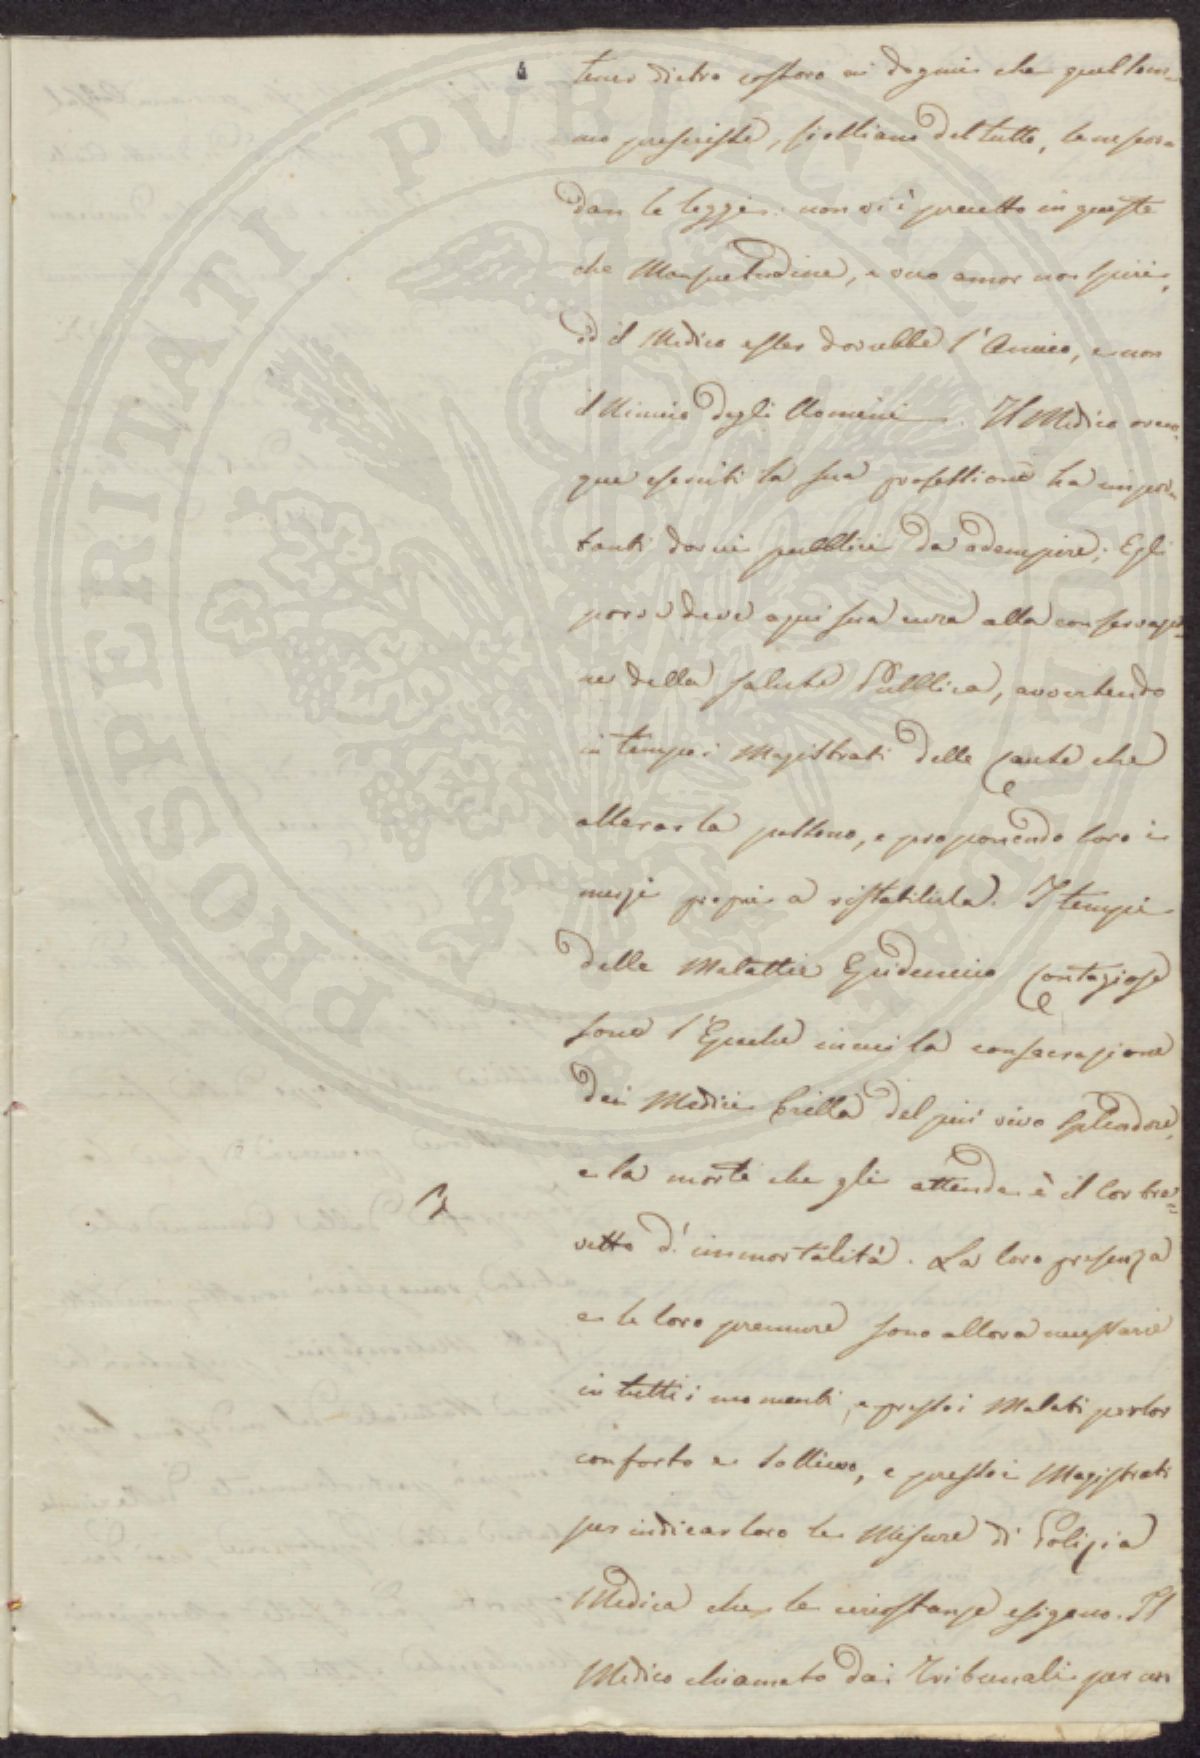 tener dietro costoro ai dogmi che quel som=
mo prescriste, si obliano del tutto, le
dan le leggi: non vi è precetto in queste
che Mansuetudine, e vero amor non spiri,
ed il Medico esser dovrebbe l'Amico, e non
il Nimico degli Uomini. Il Medico ovun=
que eserciti la sua professione ha impor=
tanti doveri pubblici da adempire; Egli
porre deve ogni sua cura alla conservazio=
ne della salute Pubblica, avvertendo
in tempo i Magistrati delle Cause che
alterarla possono, e proponendo loro i
mezzi propri a ristabilirla. I tempi
delle Malattie Epidemico Contagiose
sono l'Epoche in cui la consacrazione
dei Medici brilla del più vivo splendore,
e la morte che gli attende è il lor bre=
vetto d'immortalità. La loro presenza
e le loro premure sono allora necessarie
in tutti i momenti, e presso i Malati per lor
conforto e sollievo, e presso i Magistrati
per indicar loro le Misure di Polizia
Medica che le circostanze esigono. Il
Medico chiamato dai Tribunali per un
PROSPERITATI PUBLICAE